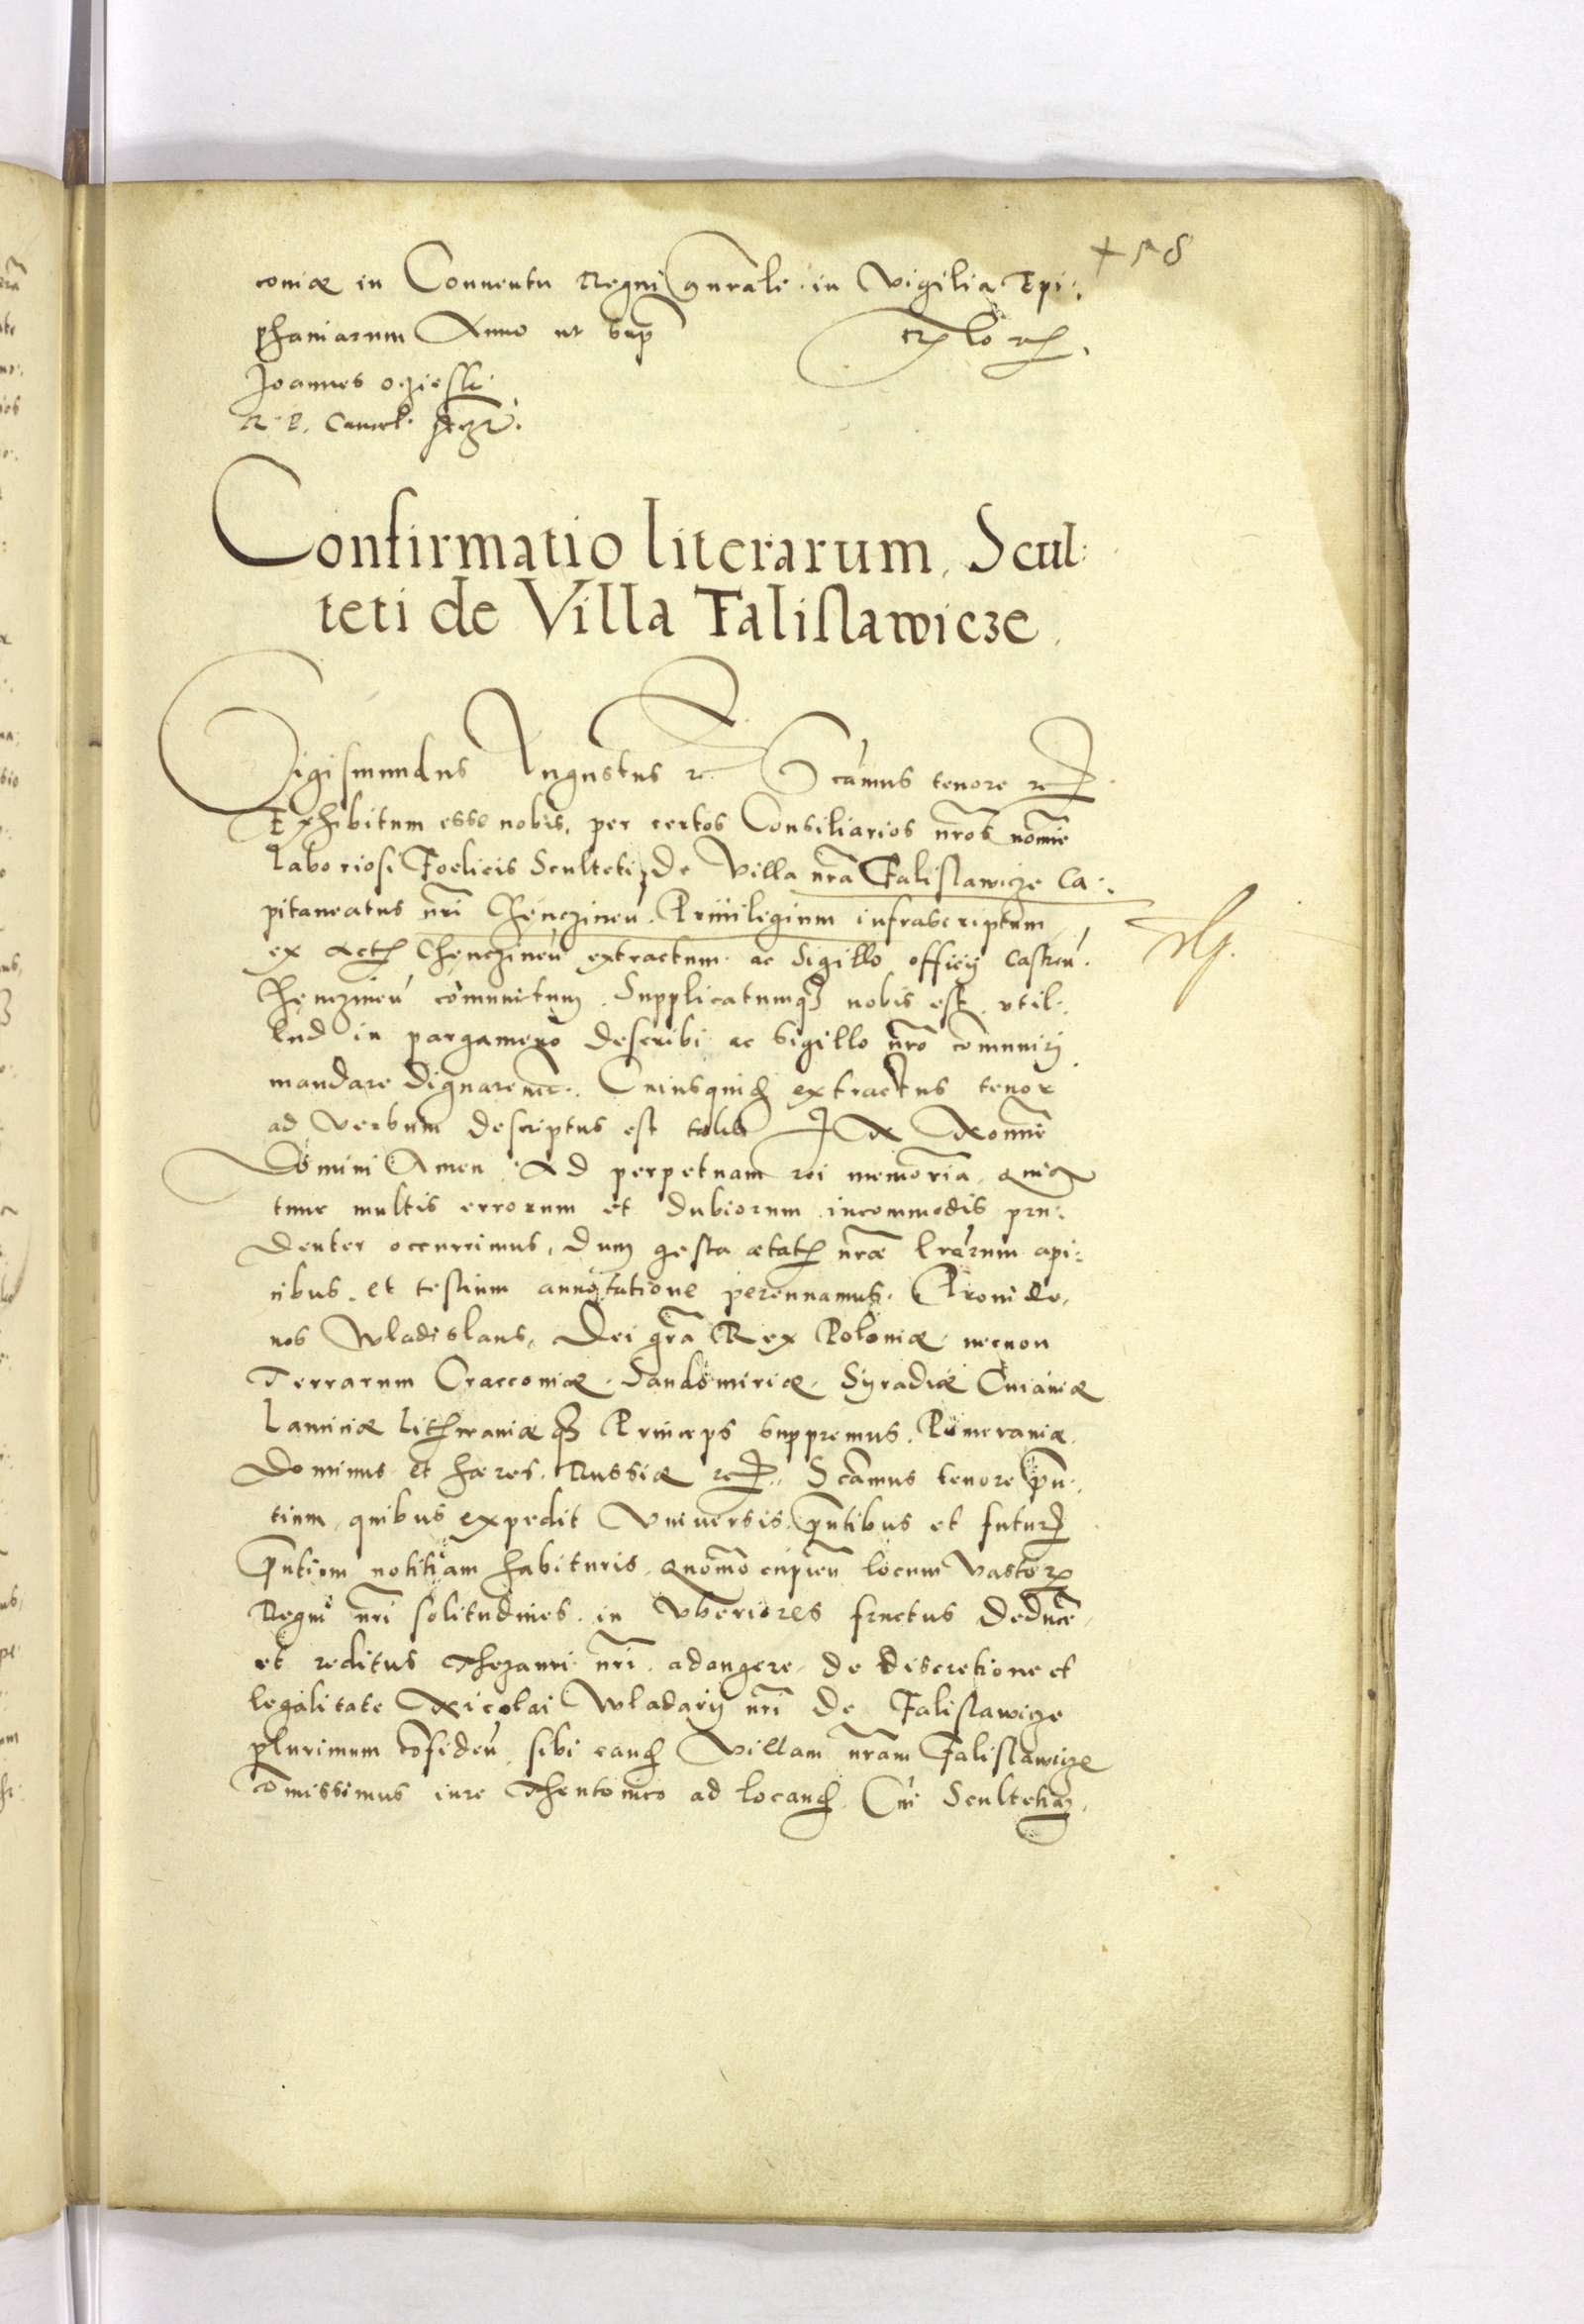 coniæ in Conuentu Regni gnrali in Vigilia Epi:
phaniarum Anno ut sup
Joannes Ocziesky
R. P. Cancel. 
Confirmatio literarum Scul:
teti de Villa Falislawicze
Sigismundus Augustus etc. Scamus tenore etc.
Exhibitum esse nobis, per certos Consiliarios nros nomie
laboriosi Foelicis Sculteti de Villa nra Falislawicze Ca:
pitaneatus nri Chenczineń. Priuilegium infrascriptum
ex Actis Chenczineń extractum ac Sigillo officij Castreń.
Chencznień comunitum. Supplicatumq nobis est, vt il:
lud in pargameno describi ac sigillo nro comuniri
mandare dignaremr. Cuiusquid extractus tenor
ad verbum descriptus est talis In Nomie
Domini Amen. Ad perpetuam rei memoria, quia
tunc multis errorum et dubiorum incommodis pru:
denter occurrimus, dum gesta ætatis nræ lrarum api:
cibus, et testium annotatione perennamus. Proinde,
nos Wladislaus, Dei gra Rex Poloniæ, necnon
Terrarum Cracconiæ, Sandomiriæ, Syradiæ Cuiauiæ
Lanciciæ Lithwaniæq Princeps suppremus, Pomeraniæ
Dominus et hæres Russiæ etc. Scamus tenore pn:
tium, quibus expedit Vniuersis, pntibus et futuris
pntium notitiam habituris, quomo cupień locum vastorum
Regni nri solitudines, in vberiores fructus deduce
et reditus Thezauri nri adaugere, de discretione et
legalitate Nicolai Wladarij nri de Falislawicze
plurimum cofideń, sibi eand Villam nram Falislawicze
comissimus iure Theutonico ad locand. Cui Scultetiam